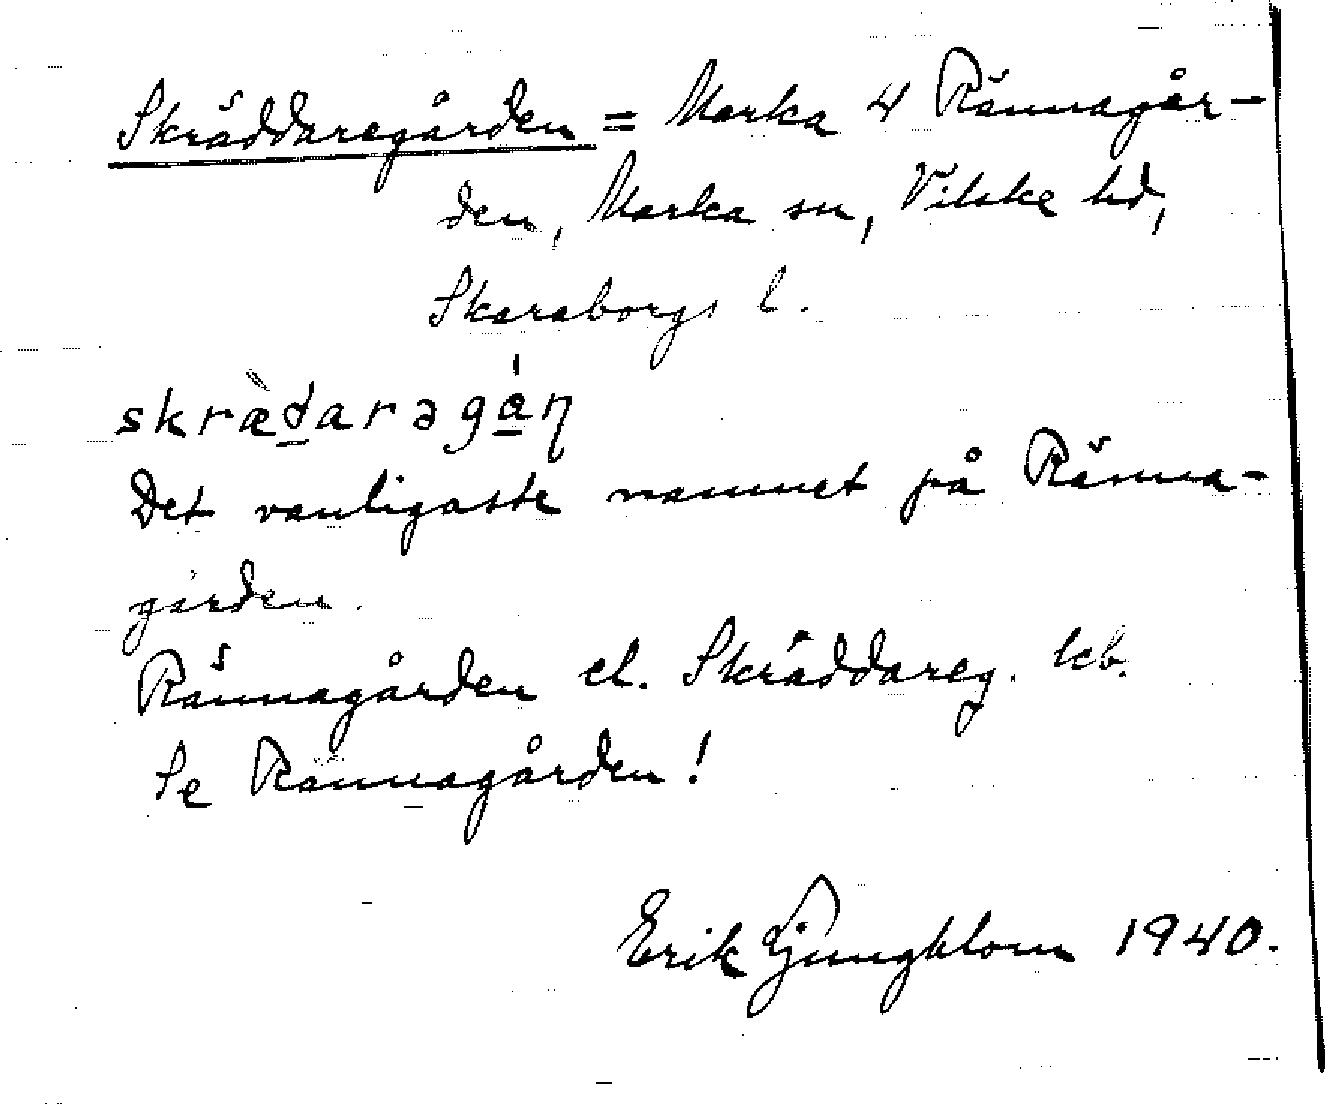 Skräddaregården = Marka 4 Rännagår-
den, Marka sn, Vilske hd,
Skaraborgs l.
skræ̀d̲aragá̲ɳ
Det vanligaste namnet på Ränna-
gården.
Rännagården el. Skräddareg. kb.
Se Rännagården!
Erik Ljungblom 1940.